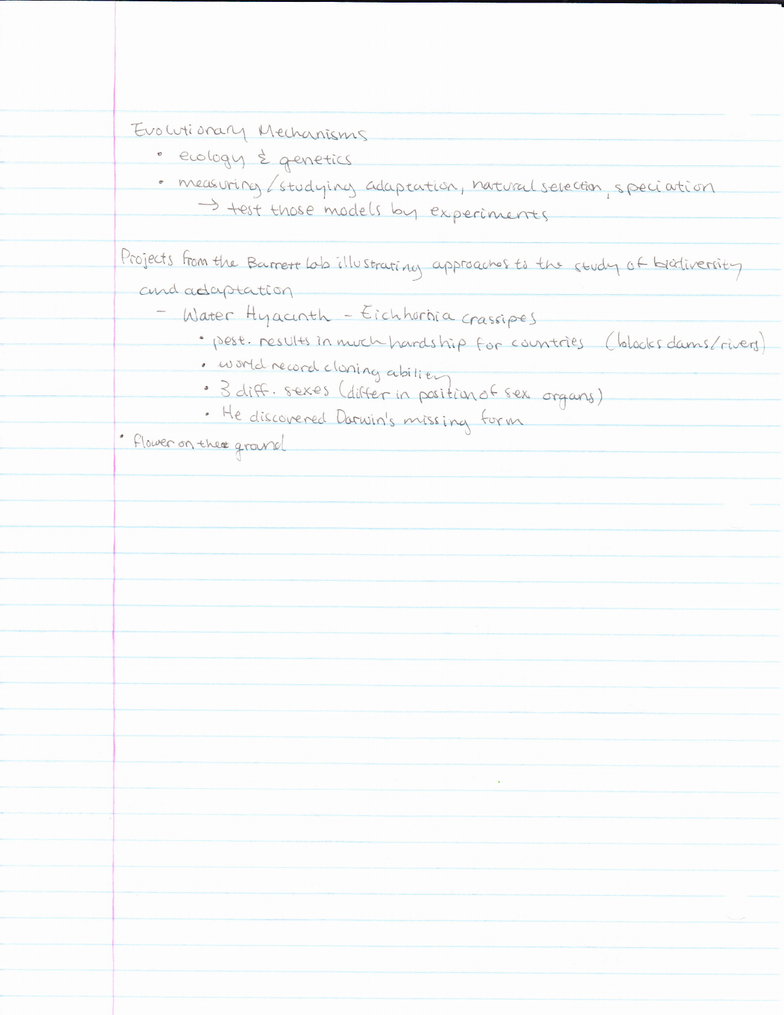 Evolutionary Mechanisms
• ecology & genetics
• measuring/studying adaptation, natural selection, speciation
→ test those models by experiments
Projects from the Barrett lab illustrating approaches to the study of biodiversity
and adaptation
- Water Hyacinth - Eichhornia crassipes
• pest. results in much hardship for countries (blocks dams/rivers)
• world record cloning ability
• 3 diff. sexes (differ in position of sex organs)
• He discovered Darwin's missing form
• flower on the ground